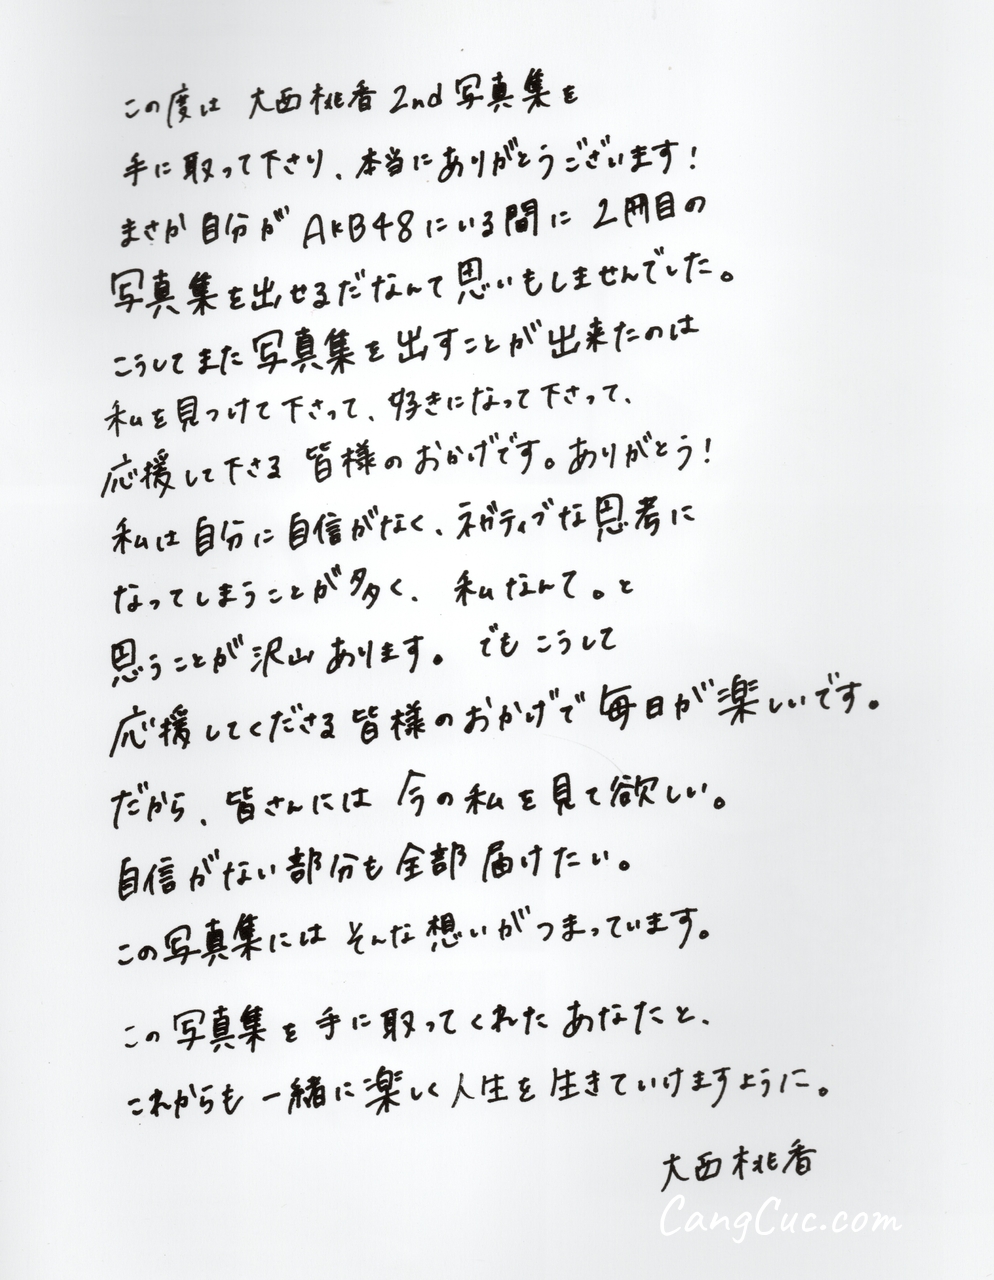 この度は 大西桃香 2nd写真集を
手に取って下さり、本当にありがとうございます!
まさか自分がAKB48にいる間に2冊目の
写真集を出せるだなんて思いもしませんでした。
こうしてまた写真集を出すことが出来たのは
私を見つけて下さって、好きになって下さって、
応援して下さる皆様のおかげです。ありがとう!
私は自分に自信がなく、ネガティブな思考に
なってしまうことが多く、私なんて。と
思うことが沢山あります。でもこうして
応援してくださる皆様のおかげで毎日が楽しいです。
だから、皆さんには今の私を見て欲しい。
自信がない部分も全部届けたい。
この写真集にはそんな想いがつまっています。
この写真集を手に取ってくれたあなたと、
これからも一緒に楽しく人生を生きていけますように。
大西桃香
CangCuc.com